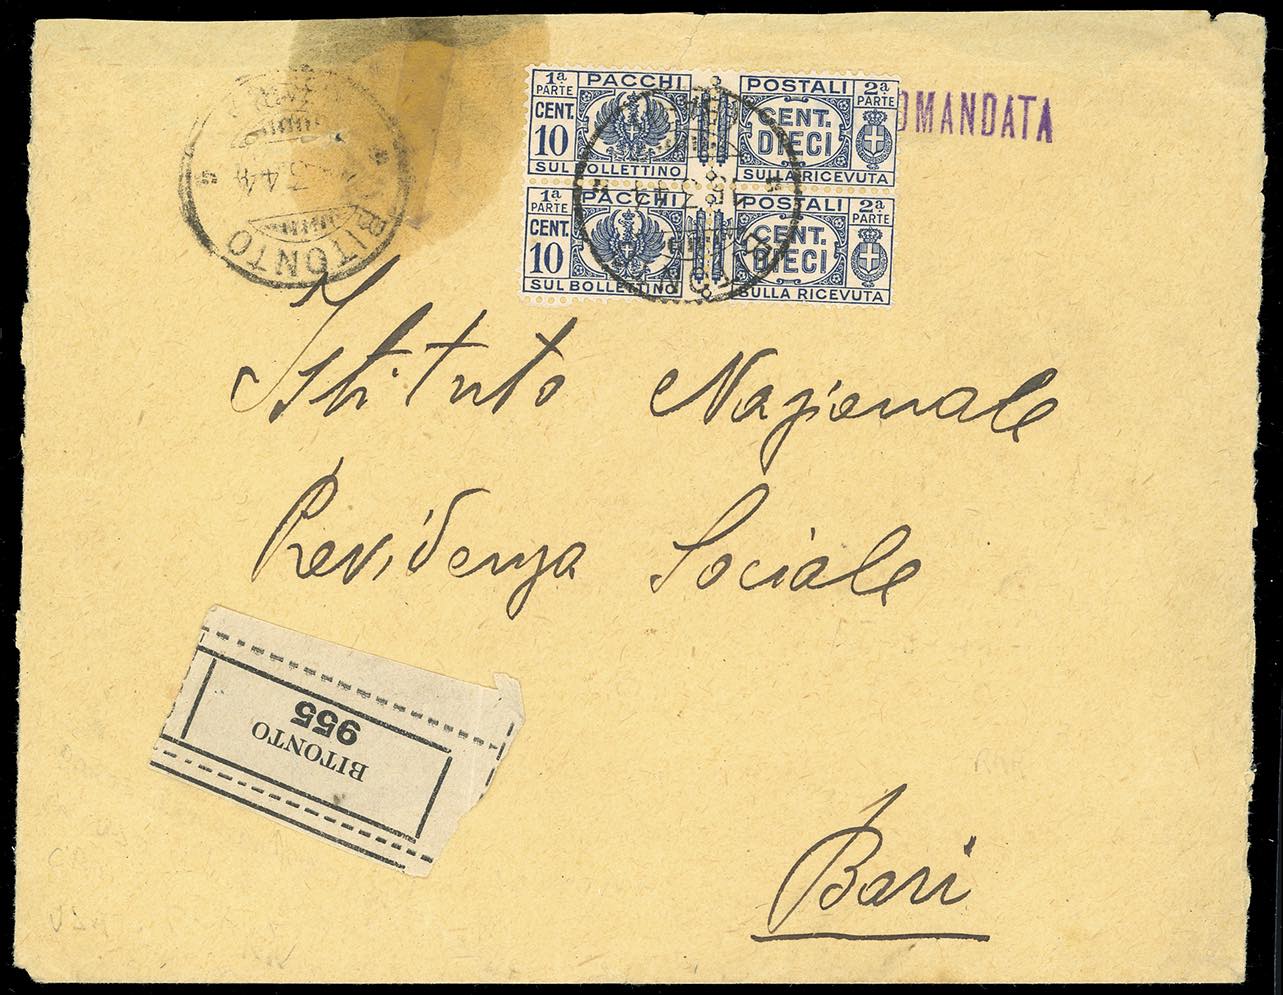 1ª PARTE PACCHI POSTALI 2ª PARTE
CENT. 10 CENT. DIECI
SUL BOLLETTINO SULLA RICEVUTA
1ª PARTE PACCHI POSTALI 2ª PARTE
CENT. 10 CENT. DIECI
SUL BOLLETTINO SULLA RICEVUTA
OMANDATA
BITONTO
Istituto Nazionale
Previdenza Sociale
BITONTO
955
Bari